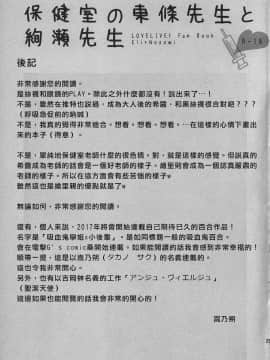 保健室の東條先生と
絢瀬先生
LOVELIVE! Fan Book
Eli×Nozomi
R-18
後記
非常感謝您的閱讀。
是絲襪和眼鏡的PLAY。除此之外什麼都沒有!說出來了…!
不是,雖然在推特也說過,成為大人後的希醬,和黑絲襪很合對吧???
(呼吸急促前的納喊)
不是,我真的覺得非常適合。想看。想看。想看…在這樣的心情下畫出
來的本子(得意)。
不是,單純地保健室老師什麼的很色情,對,就是這樣的感覺。但說真的
希醬成為老師的話會是一個好老師的樣子。繪里則會成為一個認真嚴肅的
老師的樣子。所以在這方面會有些苦惱的樣子♥
雖然這也是繪里親的優點就是了♥
無論如何,非常感謝您的閱讀。
還有,個人來說,2017年將會開始連載自己期待已久的百合作品!
名字是「吸血鬼學姐:小後輩」。是如同標題一般的吸血鬼百合。
會在電擊G's comic桑開始連載。如果能閱讀的話我會感到非常幸福的!
順帶一提,這是以高乃朔(タカノ サク)的名義連載的。
這也令我非常開心。
另外,也有以吉岡榊名義的工作「アンジュ・ヴィエルジュ」
(聖潔天使)
這邊如果也能閱閱的話我會非常的開心的!
高乃朔